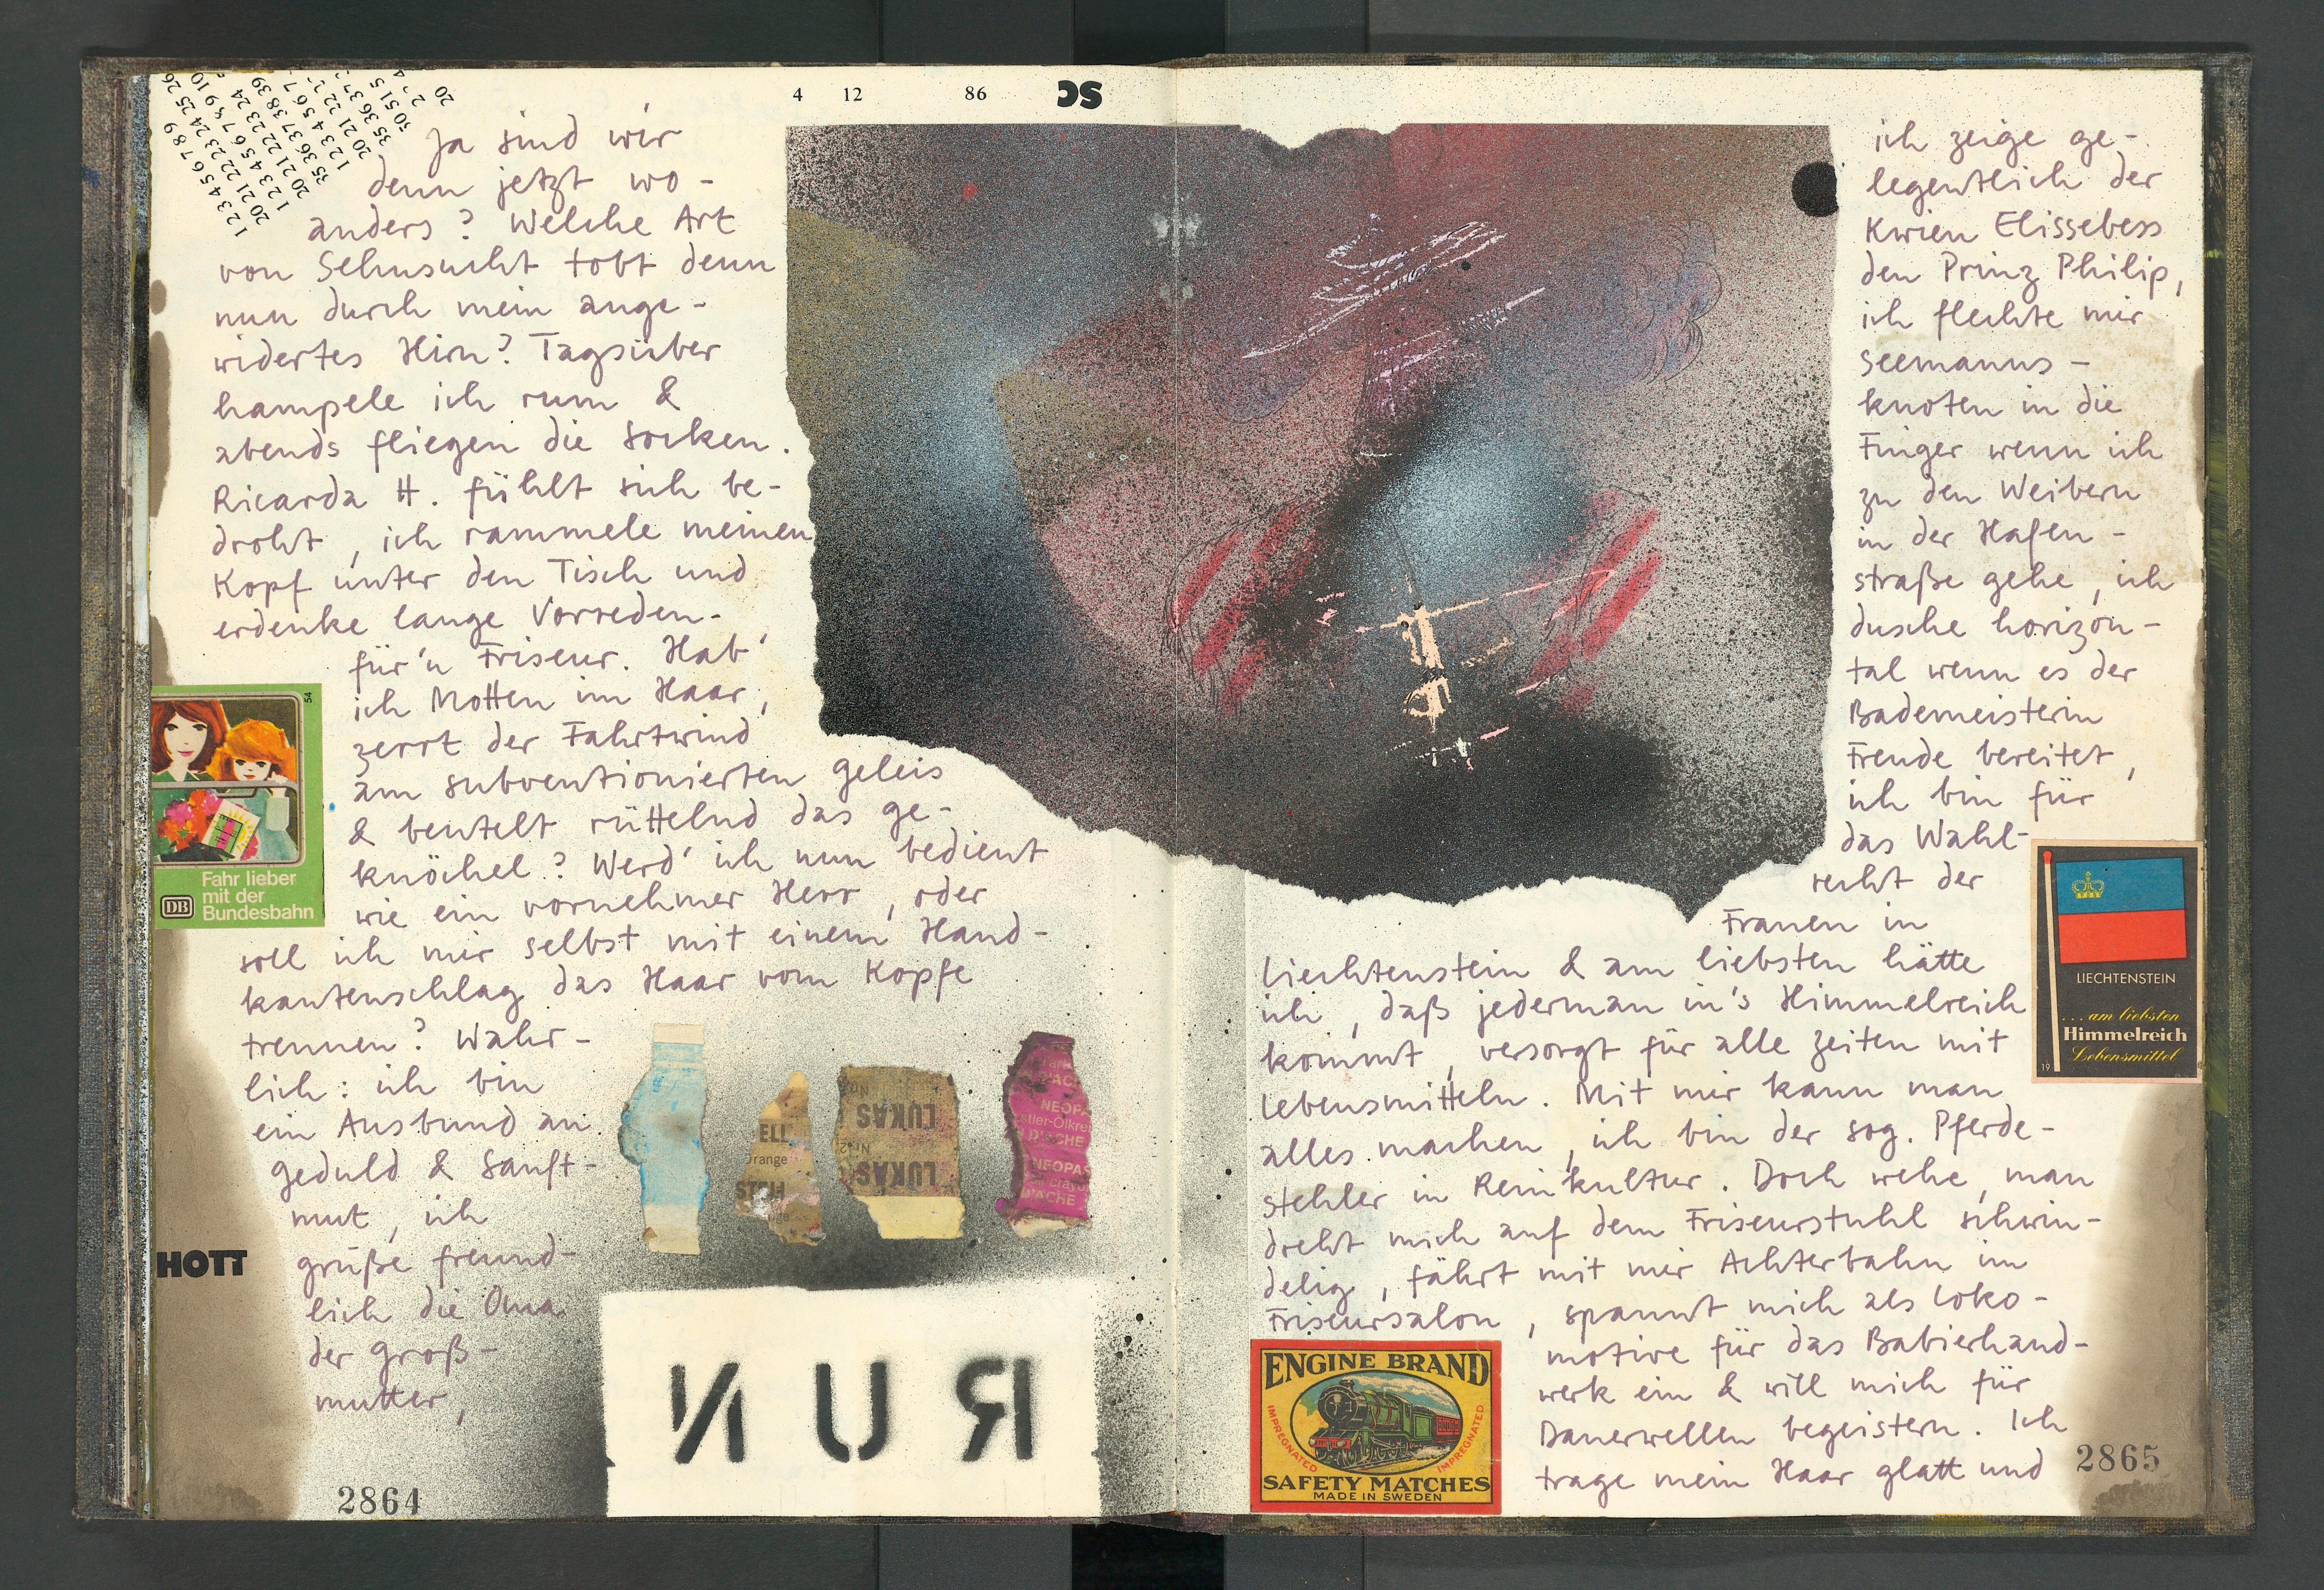 4 12 86 SC
Ja sind wir
denn jetzt wo-
anders? Welche Art
von Sehnsucht tobt denn
nun durch mein ange-
widertes Hirn? Tagsüber
hampele ich rum &
abends fliegen die Socken.
Ricarda H. fühlt sich be-
droht, ich rammele meinen
Kopf unter den Tisch und
erdenke lange Vorreden-
für'n Friseur. Hab'
ich Motten im Haar,
zerrt der Fahrtwind
am subventionierten Geleis
& beutelt rüttelnd das Ge-
knöchel? Werd' ich nun bedient
wie ein vornehmer Herr, oder
soll ich mir selbst mit einem Hand-
kantenschlag das Haar vom Kopfe
trennen? Wahr-
lich: ich bin
ein Ausbund an
Geduld & Sanft-
mut, ich
grüße freund-
lich die Oma
der Groß-
mutter,
54
Fahr lieber
mit der
DB Bundesbahn
HOTT
ELL
Orange
LUKAS
LUKAS
NEOPA
D'ACHE
NEOPAS
D'ACHE
RUN
2864
ich zeige ge-
legentlich der
Kwien Elissebess
den Prinz Philip,
ich flechte mir
Seemanns-
knoten in die
Finger wenn ich
zu den Weibern
in der Hafen-
straße gehe, ich
dusche horizon-
tal wenn es der
Bademeisterin
Freude bereitet,
ich bin für
das Wahl-
recht der
Frauen in
Liechtenstein & am liebsten hätte
ich, daß jederman in's Himmelreich
kommt, versorgt für alle Zeiten mit
Lebensmitteln. Mit mir kann man
alles machen, ich bin der sog. Pferde-
stehler in Reinkultur. Doch wehe, man
dreht mich auf dem Friseurstuhl schwin-
delig, fährt mit mir Achterbahn im
Friseursalon, spannt mich als Loko-
motive für das Babierhand-
werk ein & will mich für
Dauerwellen begeistern. Ich
trage mein Haar glatt und
LIECHTENSTEIN
...am liebsten
Himmelreich
Lebensmittel
19
ENGINE BRAND
IMPREGNATED IMPREGNATED
SAFETY MATCHES
MADE IN SWEDEN
2865